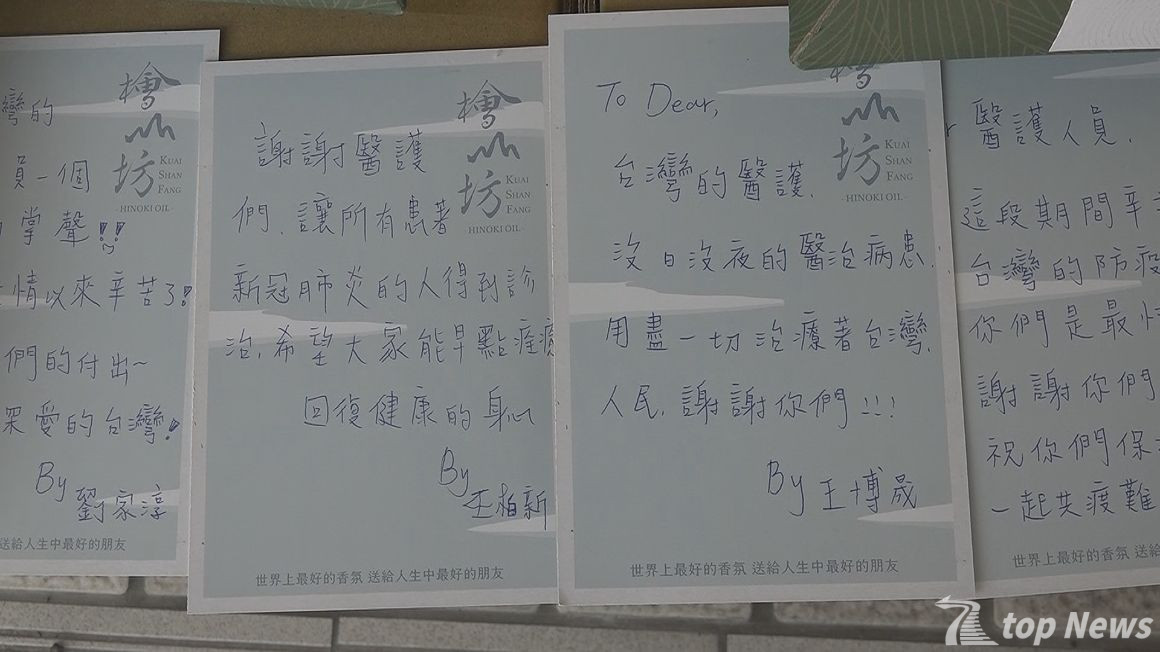 彎的
員一個
掌聲!!
情以來辛苦了!
們的付出~
深愛的台灣!
By 劉家淳
送給人生中最好的朋友
檜山坊
KUAI
SHAN
FANG
HINOKI OIL
謝謝醫護
們，讓所有患著
新冠肺炎的人得到診
治，希望大家能早點痊癒
回復健康的身心
By 王柏新
檜山坊
KUAI
SHAN
FANG
HINOKI OIL
世界上最好的香氛 送給人生中最好的朋友
To Dear,
台灣的醫護，
沒日沒夜的醫治病患，
用盡一切治療著台灣，
人民，謝謝你們!!!
By 王博晟
檜山坊
KUAI
SHAN
FANG
HINOKI OIL
世界上最好的香氛 送給人生中最好的朋友
醫護人員，
這段期間辛
台灣的防疫
你們是最
謝謝你們
祝你們保
一起共渡難
世界上最好的香氛 送
top News